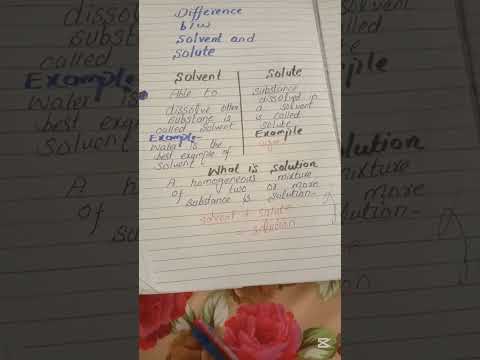 Difference
b/w
Solvent and
Solute
Solvent
Able to
dissolve other
substance is
called solvent
Example-
Water is the
best example of
solvent
Solute
substance
dissolved in
a solvent
is called
solute
Example
What is solution
A homogeneous mixture
of two or more
substance is solution-
solvent + solute
= solution